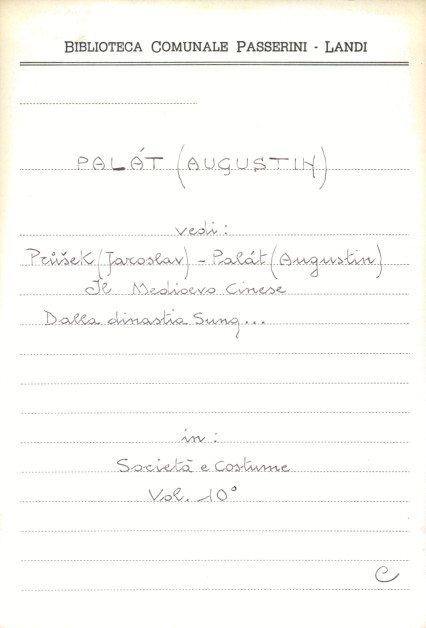 BIBLIOTECA COMUNALE PASSERINI - LANDI
PALÁT (AUGUSTIN)
vedi:
Průšek (Jaroslav) - Palát (Augustin)
Il Medioevo Cinese
Dalla dinastia Sung...
in:
Società e Costume
Vol. 10°
C